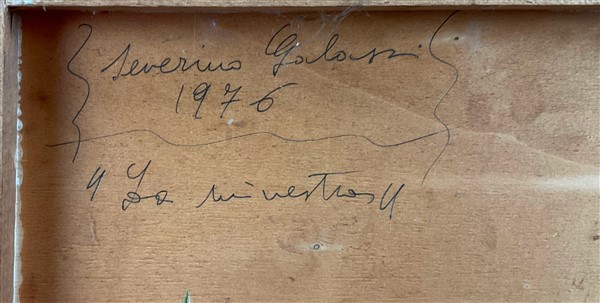 Severino Galassi
1976
"La minestra"